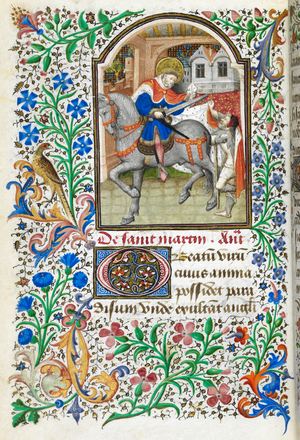 De saint martin. Añ
O Beatū virū
cuius anima
possidet para
disum unde exultāt angli